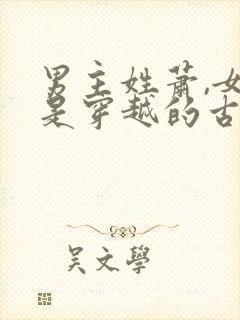 男主姓萧,女
是穿越的古
吴文学